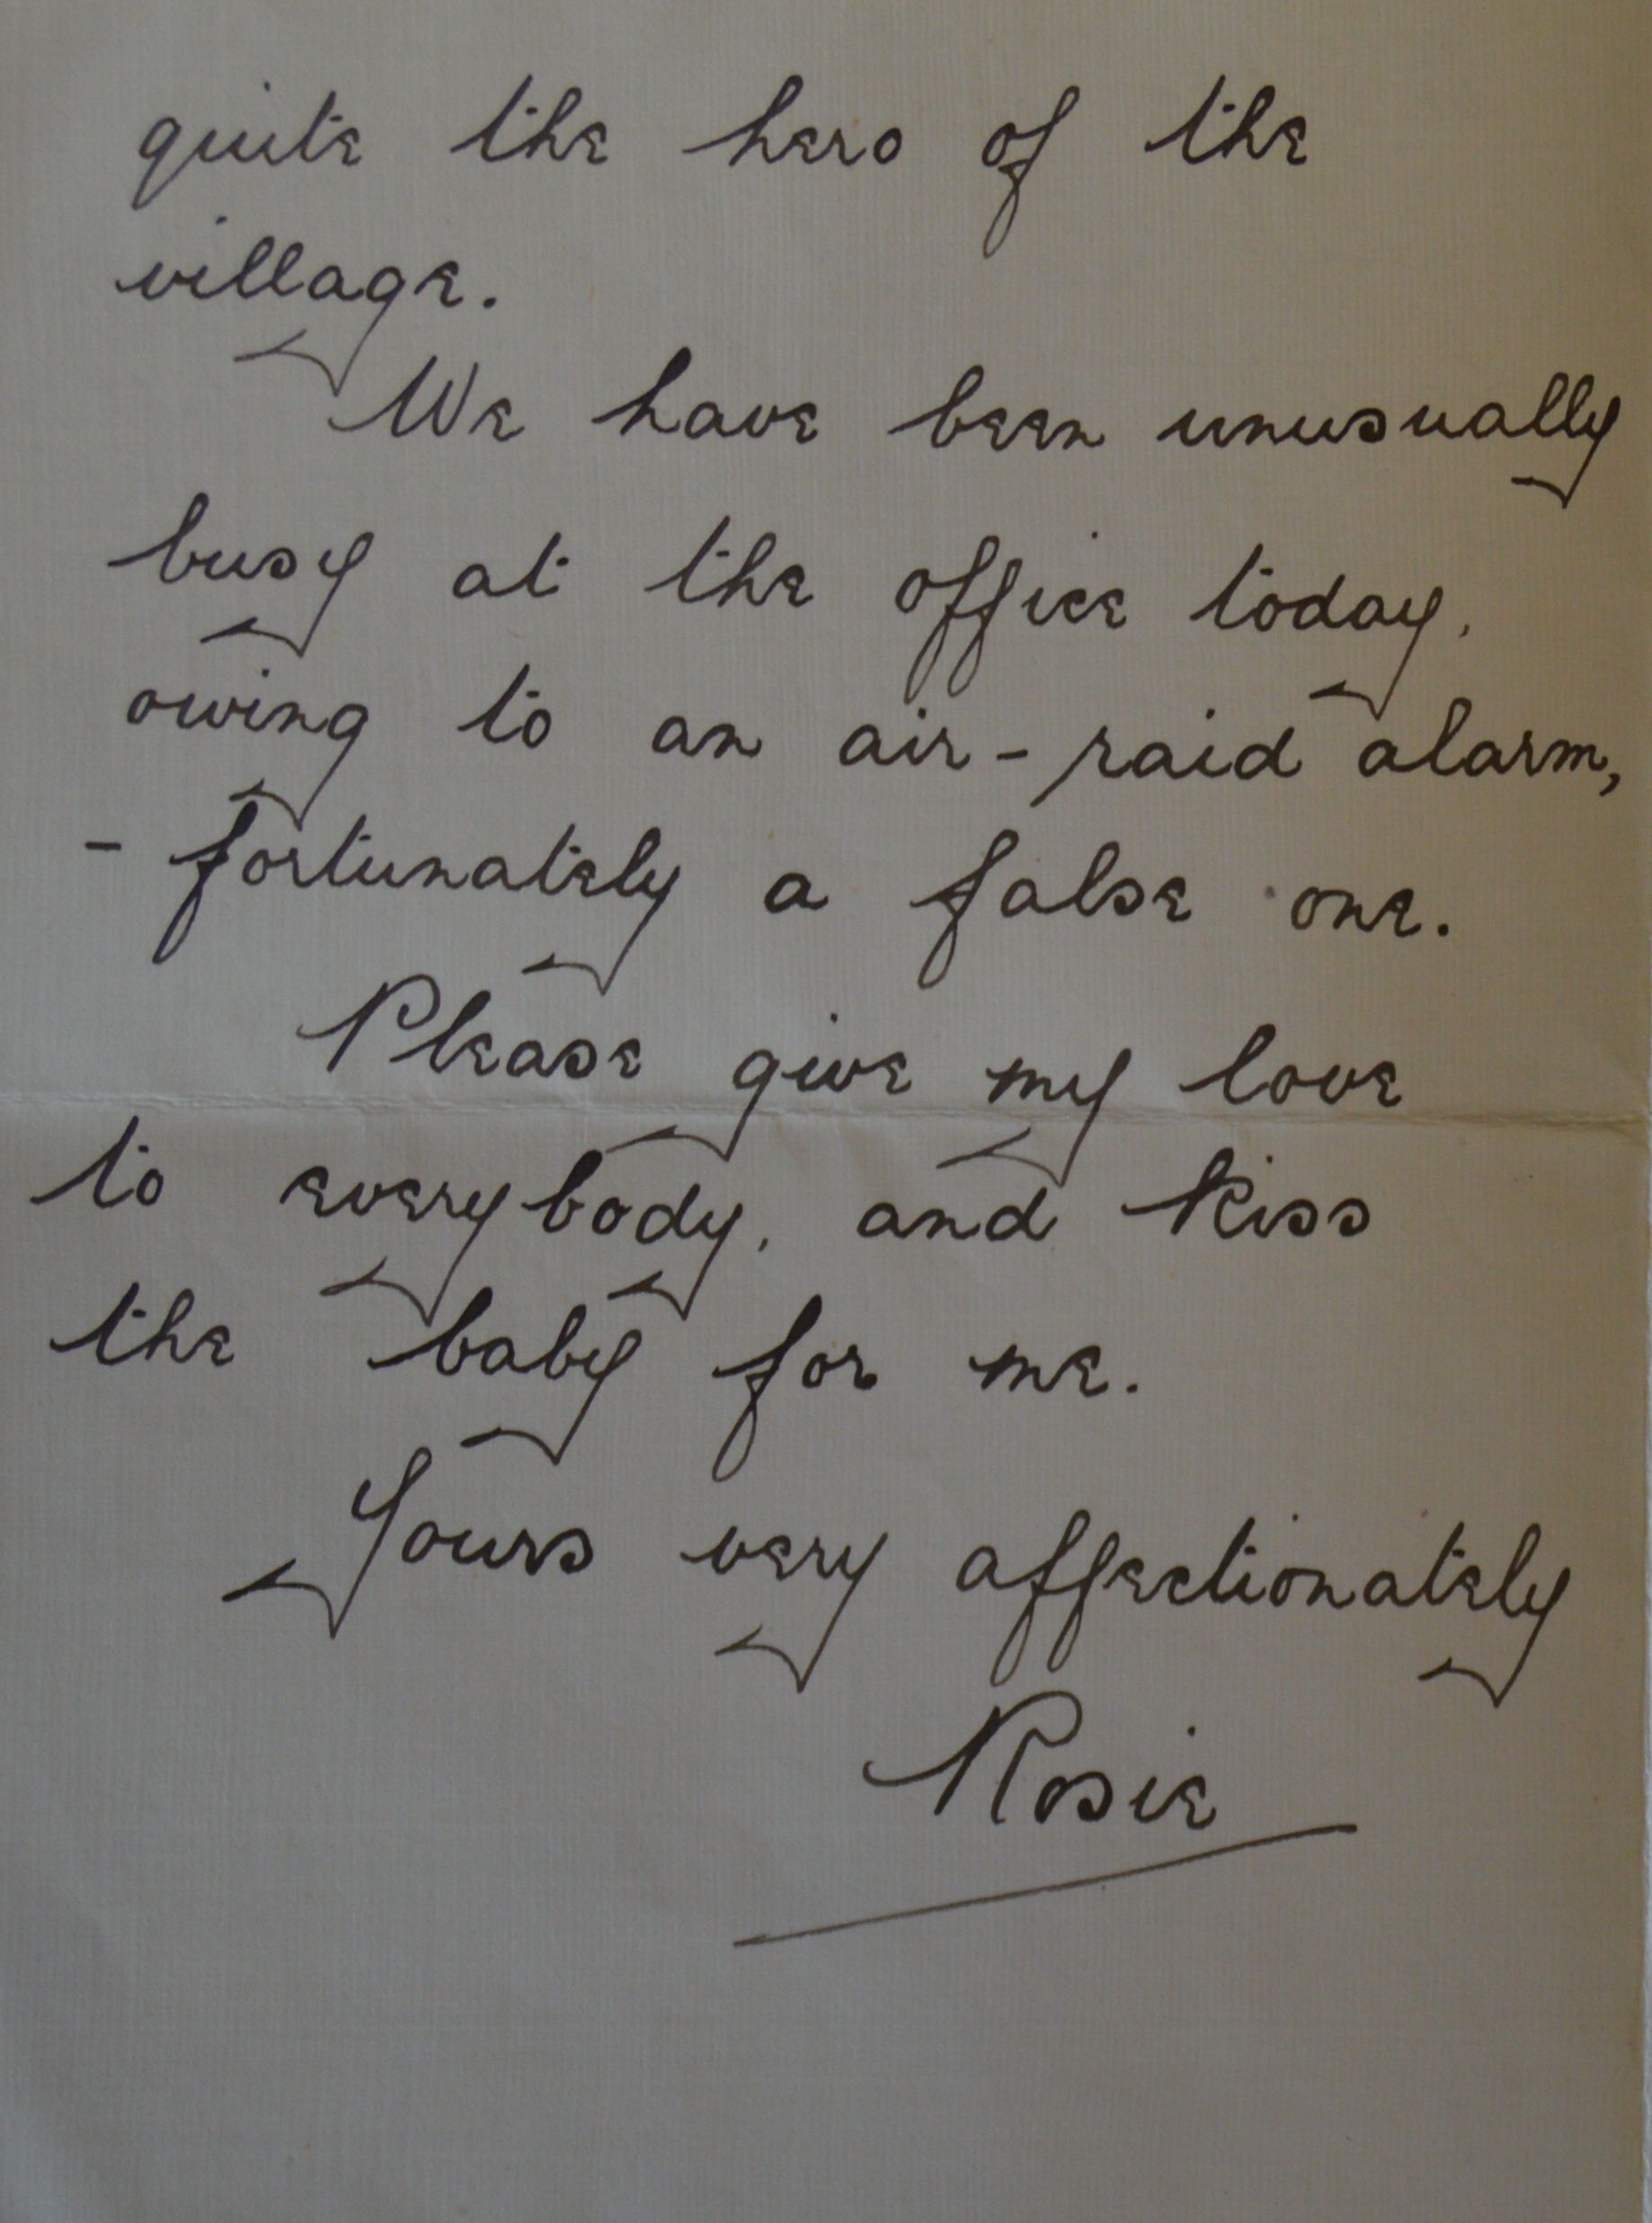 quite the hero of the
village.
We have been unusually
busy at the office today,
owing to an air-raid alarm,
- fortunately a false one.
Please give my love
to everybody, and kiss
the baby for me.
Yours very affectionately
Rosie